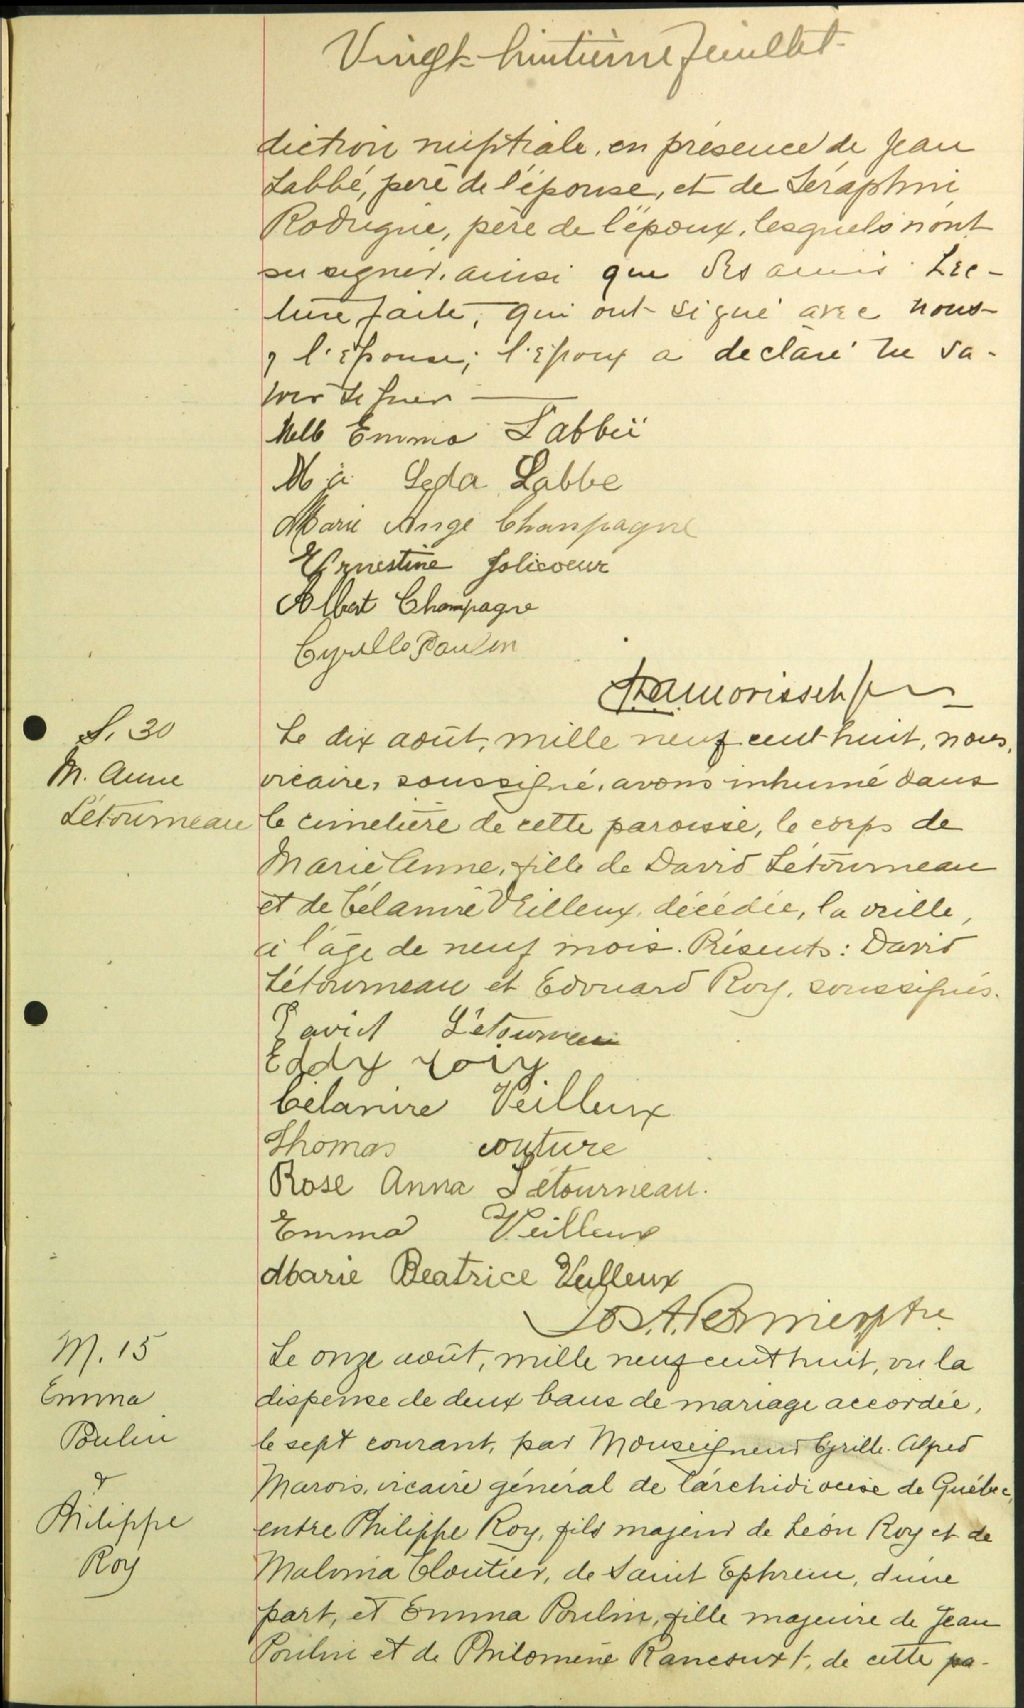 Vingt-huitième feuillet
diction nuptiale, en présence de Jean
Labbé, père de l'épouse, et de Séraphin
Rodrigue, père de l'époux, lesquels n'ont
su signer, ainsi que des amis. Lec-
ture faite, qui ont signé avec nous
& l'épouse; l'époux a déclaré ne sa-
voir signer
Melle Emma Labbé
Leda Labbe
Marie Ange Champagne
Ernestine Jolicoeur
Albert Champagne
Cyrille Poulin
S. 30
M. Anne
Létourneau
Le dix août, mille neuf cent huit, nous,
vicaire, soussigné, avons inhumé dans
le cimetière de cette paroisse, le corps de
Marie Anne, fille de David Létourneau
et de Célanire Veilleux, décédée, la veille,
à l'âge de neuf mois. Présents: David
Létourneau et Edouard Roy, soussignés.
David Létourneau
Eddy Roiy
Célanire Veilleux
Thomas couture
Rose Anna Létourneau.
Emma Veilleux
Marie Beatrice Veilleux
Jos. A. Bernier, ptre.
M. 15
Emma
Poulin
&
Philippe
Roy
Le onze août, mille neuf cent huit, vu la
dispense de deux bans de mariage accordée,
le sept courant, par Monseigneur Cyrille-Alfred
Marois, vicaire général de l'archidiocèse de Québec,
entre Philippe Roy, fils majeur de Léon Roy et de
Malvina Cloutier, de Saint Ephrem, d'une
part, et Emma Poulin, fille majeure de Jean
Poulin et de Philomène Rancourt, de cette pa-